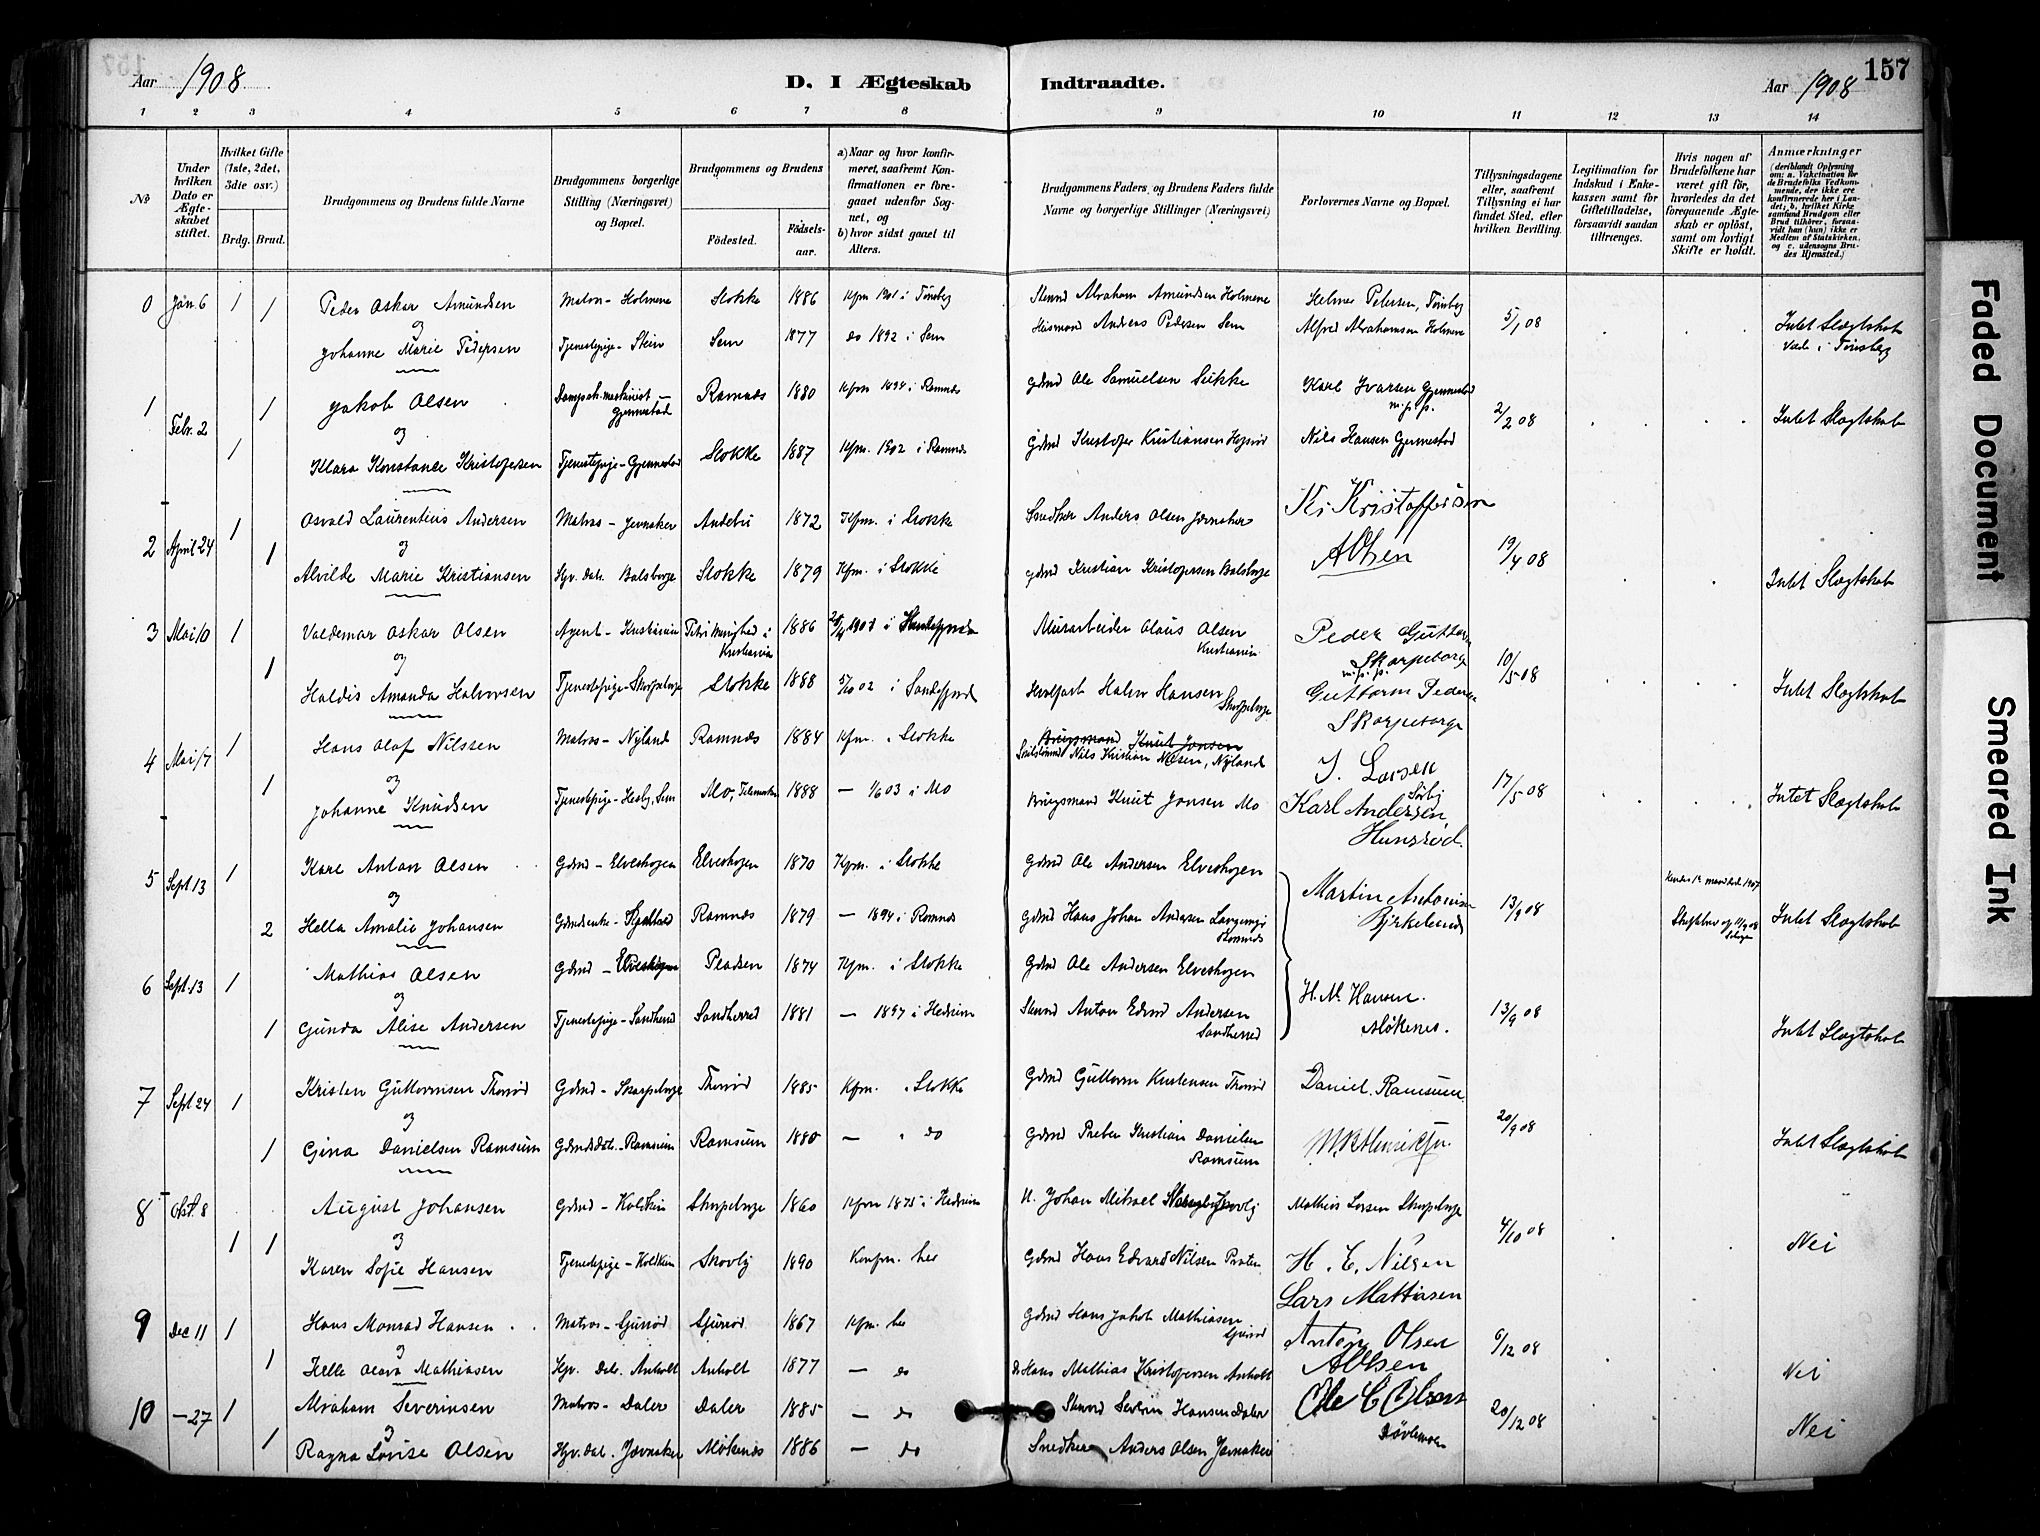 Aar 1908
D. I Ægteskab Indtraadte.
Aar 1908
157
1 2 3 4 5 6 7 8 9 10 11 12 13 14
No
Under hvilken Dato er Ægteskabet stiftet.
Hvilket Gifte (1ste, 2det, 3die osv.)
Brdg. Brud.
Brudgommens og Brudens fulde Navne
Brudgommens borgerlige Stilling (Næringsvei) og Bopæl.
Brudgommens og Brudens
Fødested. Fødselsaar.
a) Naar og hvor konfirmeret, saafremt Konfirmationen er foregaaet udenfor Sognet, og
b) hvor sidst gaaet til Alters.
Brudgommens Faders, og Brudens Faders fulde Navne og borgerlige Stillinger (Næringsvei)
Forlovernes Navne og Bopæl.
Tillysningsdagene eller, saafremt Tillysning ei har fundet Sted, efter hvilken Bevilling.
Legitimation for Indskud i Enkekassen samt for Giftetilladelse, forsaavidt saadan tiltrænges.
Hvis nogen af Brudefolkene har været gift før, hvorledes da det foregaaende Ægteskab er opløst, samt om lovligt Skifte er holdt.
Anmærkninger (deriblandt Oplysning om: a. Vakcination for de Brudefolks Vedkommende, der ikke ere konfirmerede her i Landet; b, hvilket Kirkesamfund Brudgom eller Brud tilhører, forsaavidt han (hun) ikke er Medlem af Statskirken, og c. udensogns Brudes Hjemsted.)
0 Jan. 6 1 Peder Oskar Amundsen Matros - Holmene Stokke 1886 Kfm 1901 i Tønsberg Abraham Amundsen Holmene Helmer Petersen, Tønsberg 5/1 08 Intet Slægtskab
og
1 Johanne Marie Pedersen Tjenestepige - Stein Sem 1877 do 1892 i Sem Husmand Andreas Pedersen Sem Alfred Abrahamsen Holmene Viede i Tønsberg
1 Febr. 2 1 Jakob Olsen Gjennestad Ramnes 1880 Kfm 1894 i Ramnes Gdmd Ole Samuelsen Sukke Karl Ivarsen Gjennestad m.p.p. 2/2 08 Intet Slægtskab
og
1 Klara Konstance Kristofersen Tjenestepige - Gjennestad Stokke 1887 Kfm. 1902 i Ramnes Gdmd Kristofer Kristiansen Nils Hansen Gjennestad
2 April 24 1 Osvald Laurentius Andersen Matros - Jernaker Andebu 1872 Kfm. i Stokke Snedker Anders Olsen Jernaker K. Kristoffersen 19/4 08
og
1 Alvilde Marie Kristiansen Hgv. Dat. Balsberge Stokke 1879 Kfm. i Stokke Gdmd Kristian Kristofersen Balsberge A Olsen Intet Slægtskab
3 Mai 10 1 Valdemar Oskar Olsen Agent - Kristiania Petri Menighed i Kristiania 1886 i Sandefjord Murarbeider Olaus Olsen Kristiania Peder Guttorm Skorpeborge m.p.p. 10/5 08
og
1 Haldis Amanda Halvorsen Tjenestepige - Skorpeberge Stokke 1888 5/10 02 i Sandefjord Halvor Hansen Skorpeberge Guttorm Pedersen Skorpeborge Intet Slægtskab
4 Mai 17 1 Hans Olaf Nilssen Matros - Nyland Ramnes 1884 Kfm. i Stokke Brugsmand Knut Jonsen Nils Kristian Olsen, Nyland J. Larsen Sørby 17/5 08
og
1 Johanne Knudsen Tjenestepige - Hesby, Sem Mo, Telemarken 1888 — 1/6 03 i Mo Brugsmand Knut Jonsen Mo Karl Andersen, Hunsrød. Intet Slægtskab
5 Sept 13 1 Karl Anton Olsen Gdmd - Elveshogen Elveshogen 1870 Kfm. i Stokke Gdmd Ole Andersen Elveshogen Martin Antonisen Bjrkeland 13/9 08
og
2 Hella Amalie Johansen Ramnes 1879 — 1894 i Ramnes Gdmd Hans Johan Andersen Ramnes Intet Slægtskab
6 Sept. 13 1 Mathias Olsen Gdmd - Elveshogen Pladsen 1874 Kfm. i Stokke Gdmd Ole Andersen Elveshogen H. M. Hansen. Møkenes. 13/9 08
og
1 Gunda Alise Andersen Tjenestepige - Sandherred Sandherred 1881 — 1897 i Hedrum Anton Edvard Andersen Sandherred Intet Slægtskab
7 Sept 24 1 Kristen Guttormsen Thorød Gdmd - Skorpeberge Thorød 1885 Kfm. i Stokke Gdmd Guttorm Kristensen Thorød Daniel Ramsum 20/9 08
og
1 Gina Danielsen Ramsum Gdmdsdat. - Ramsum Ramsum 1880 — " do Gdmd Preber Kristian Danielsen Ramsum Intet Slægtskab
8 Okt. 8 1 August Johansen Gdmd - Holstein Skorpeberge 1860 Kfm 1875 i Hedrum Johan Mikael Skovly Mathias Larsen Skorpeberge 4/10 08
og
1 Karen Sofie Hansen Tjenestepige - Holstein Skovly 1890 Konfm. her Gdmd Hans Edvard Nilsen H. E. Nilsen Nei
9 Dec 11 1 Hans Monrad Hansen Matros - Gjurød Gjurød 1867 Kfm. her Gdmd Hans Jakob Mathiasen Gjurød Lars Mattiasen Anton Olsen 6/12 08
og
1 Helle Olava Mathiasen Hgv. Dat. Anholt Anholt 1877 — do Hans Mathias Kristofersen Anholt A Olsen Nei
10 — 27 1 Abraham Severinsen Matros - Daler Daler 1885 — do Severin Hansen Daler Ole C Olsen 20/12 08
og
1 Ragna Lovise Olsen Hgv. Dat. Jernaker Møkenes 1886 — do Snedker Anders Olsen Jernaker Nei
Faded Document
Smeared Ink